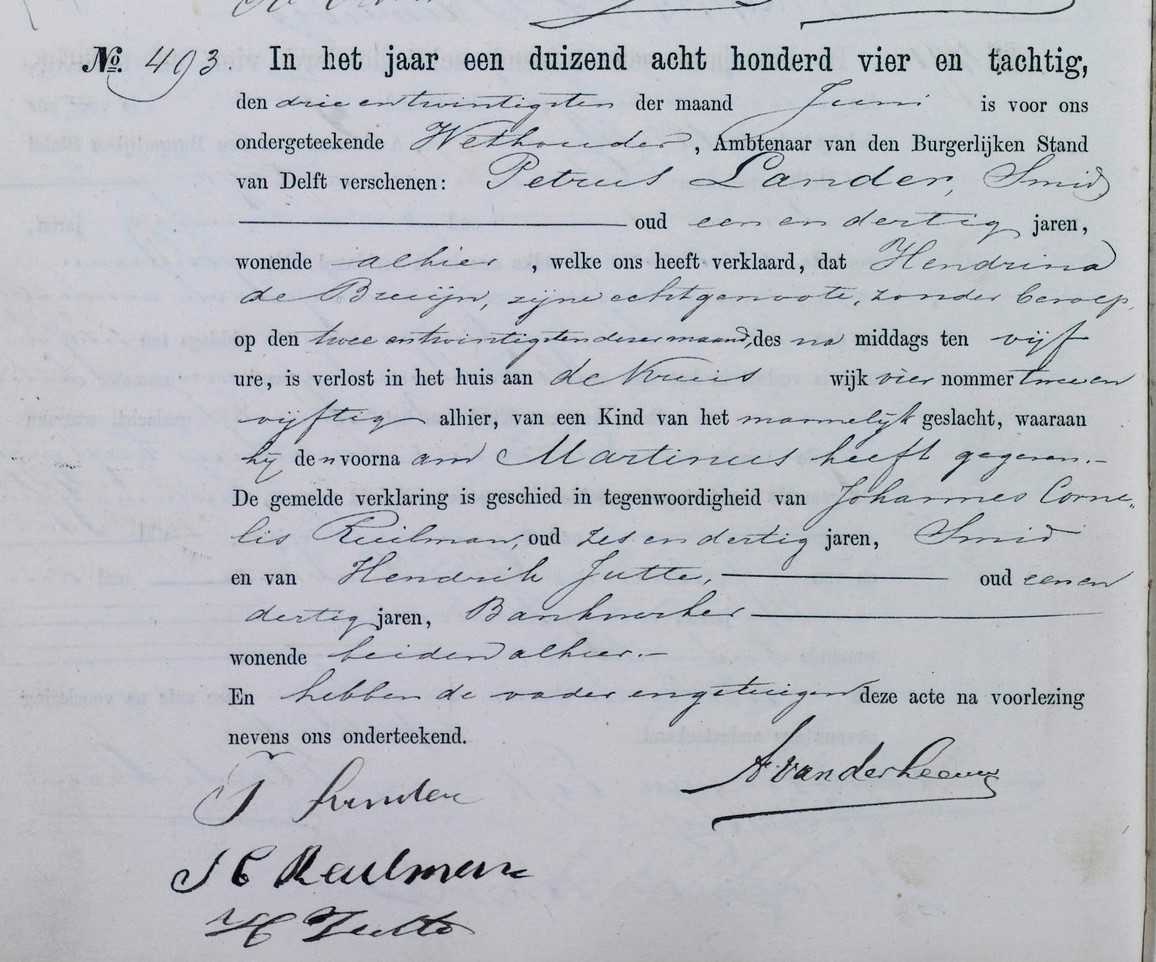 No. 493. In het jaar een duizend acht honderd vier en tachtig,
den drie en twintigsten der maand Juni is voor ons
ondergeteekende Wethouder, Ambtenaar van den Burgerlijken Stand
van Delft verschenen: Petrus Lander, Smid
oud een en dertig jaren,
wonende alhier, welke ons heeft verklaard, dat Hendrina
de Bruijn, zijne echtgenoote, zonder beroep,
op den twee en twintigsten dezer maand, des na middags ten vijf
ure, is verlost in het huis aan de Kruis wijk vier nommer twee en
vijftig alhier, van een Kind van het mannelijk geslacht, waaraan
hij den voornaam Martinus heeft gegeven.-
De gemelde verklaring is geschied in tegenwoordigheid van Johannes Corne„
lis Ruilman, oud zes en dertig jaren, Smid
en van Hendrik Jutte, oud een en
dertig jaren, Bankwerker
wonende beiden alhier.-
En hebben de vader en getuigen deze acte na voorlezing
nevens ons onderteekend.
A. van der Leeuw
P Lander
J C Reulman
H Jutte